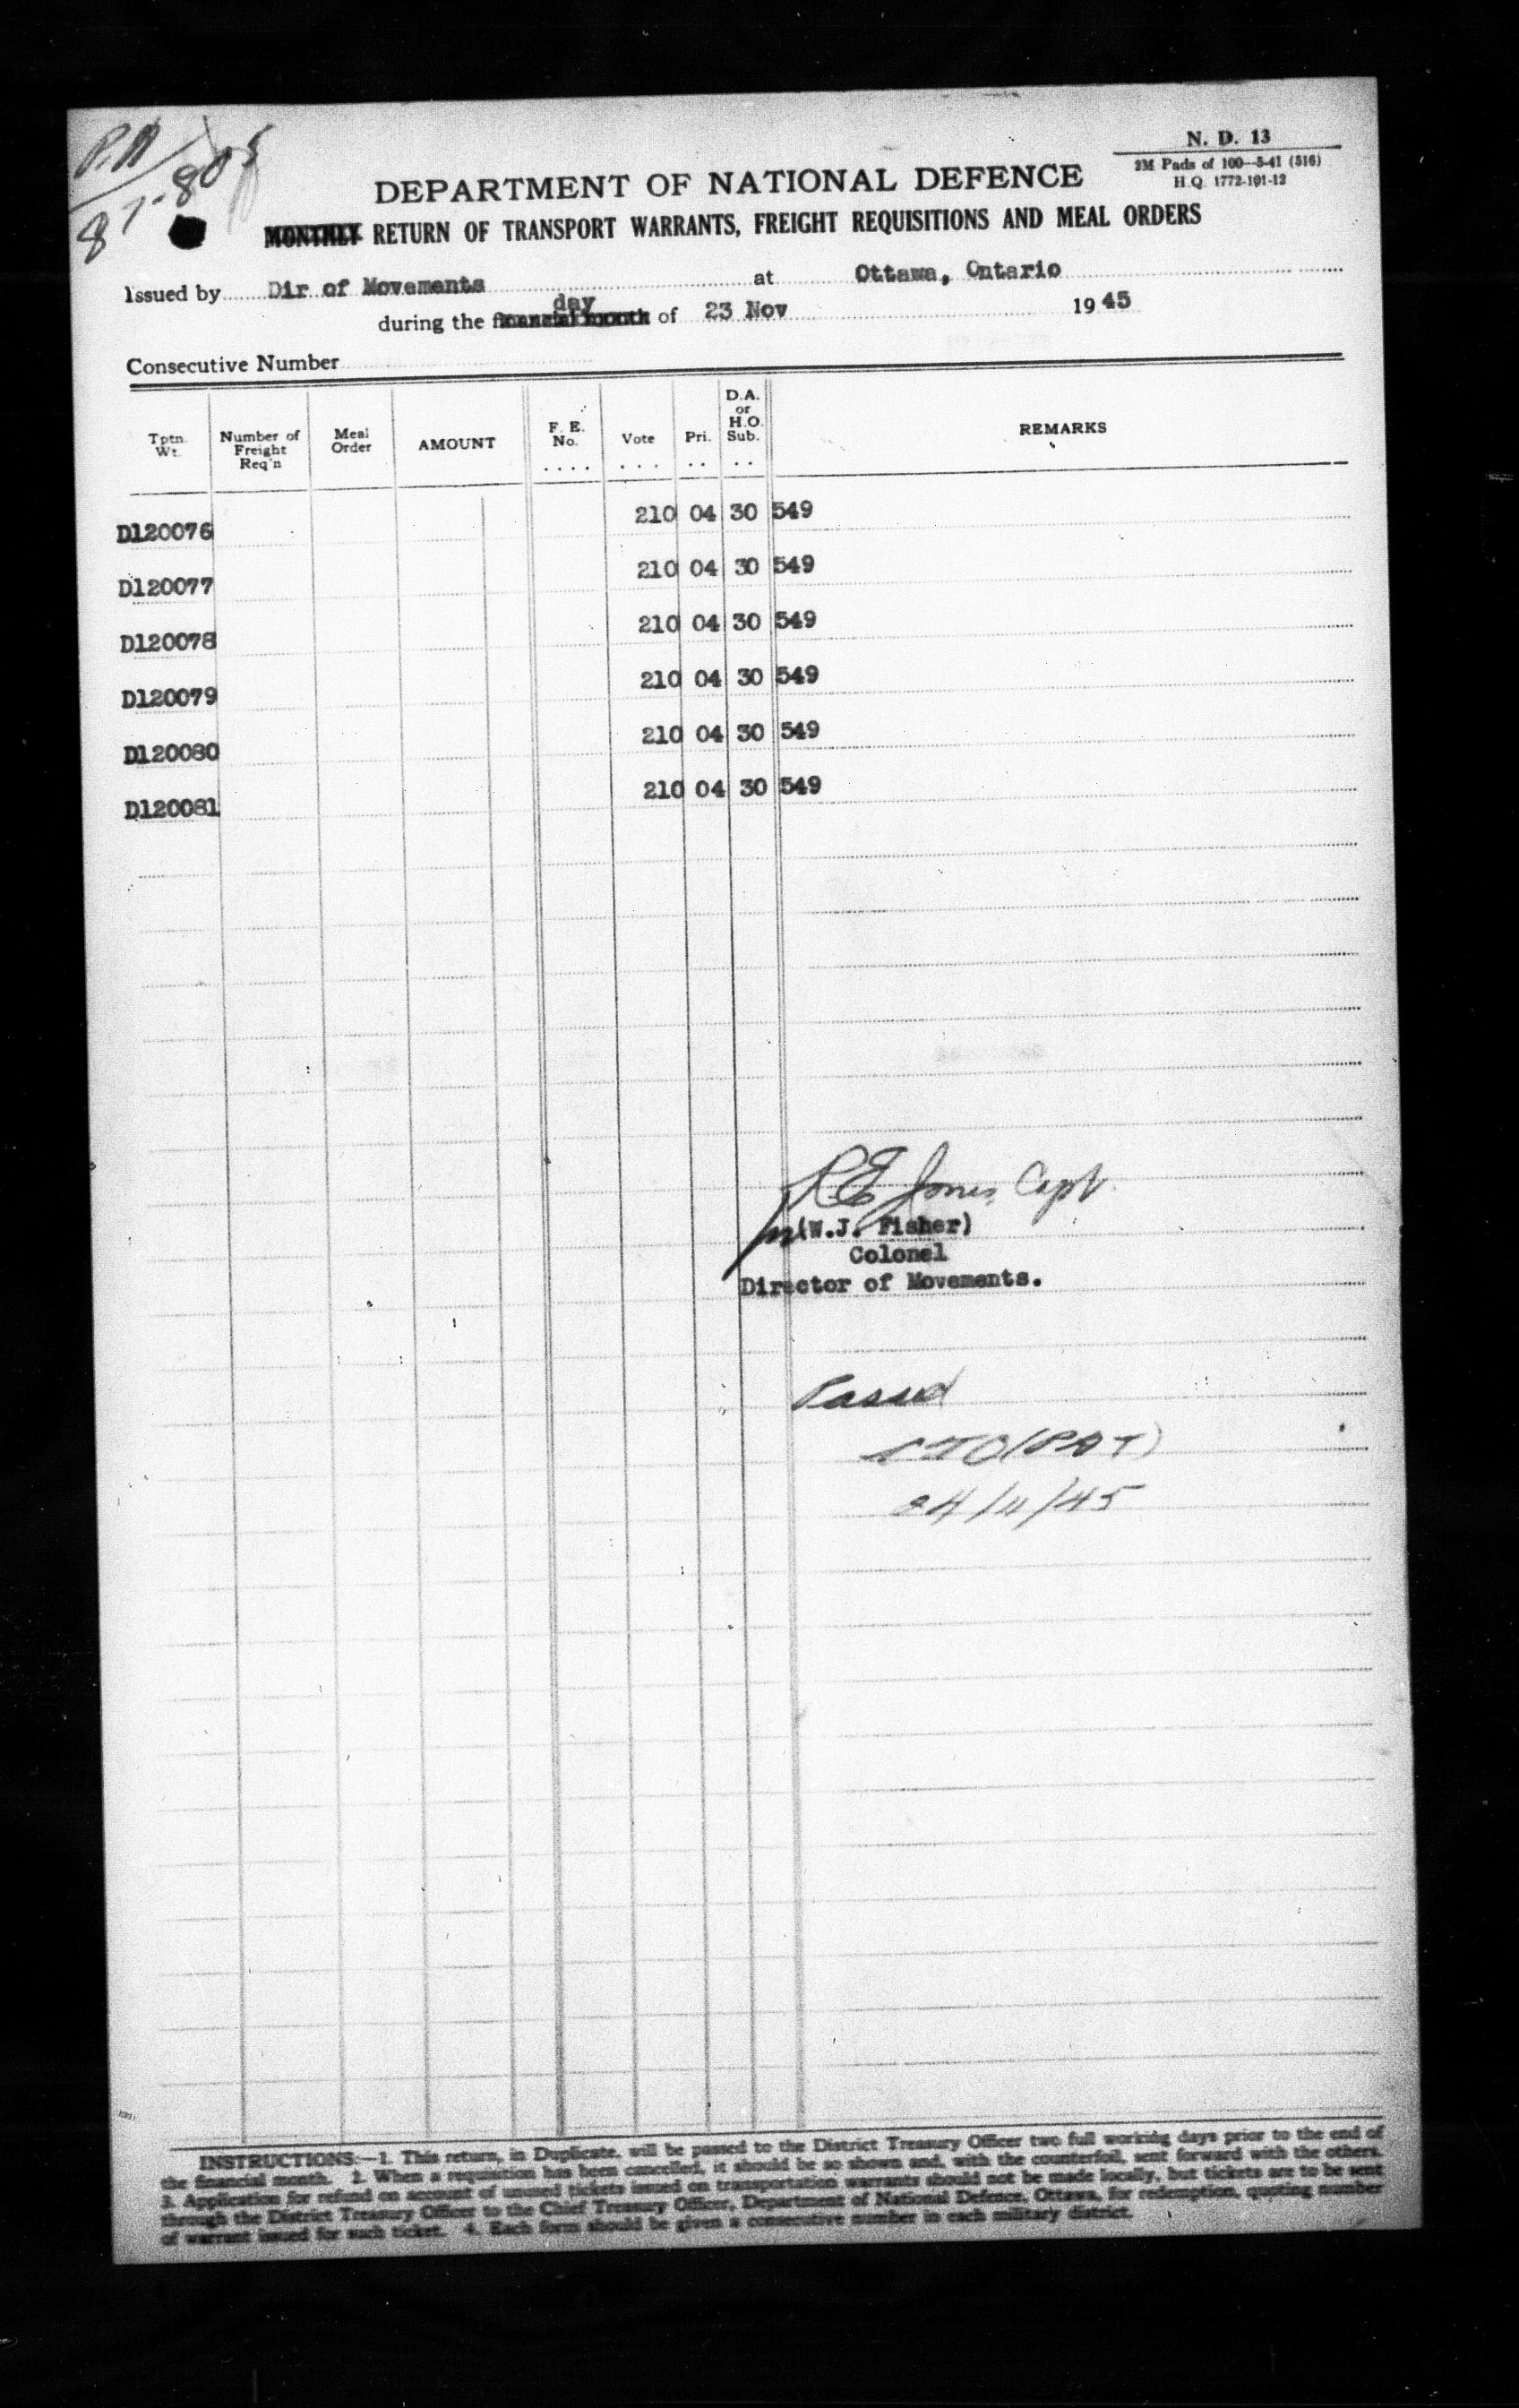 P.A
87-805
N. D. 13
2M Pads of 100—5-41 (516)
H.Q. 1772-101-12
DEPARTMENT OF NATIONAL DEFENCE
MONTHLY RETURN OF TRANSPORT WARRANTS, FREIGHT REQUISITIONS AND MEAL ORDERS
Issued by Dir of Movements at Ottawa, Ontario
day
during the financial month of 23 Nov 1945
Consecutive Number
Tptn. Wt. Number of Freight Req'n Meal Order AMOUNT F. E. No. Vote Pri. D.A. or H.O. Sub. REMARKS
D120076 210 04 30 549
D120077 210 04 30 549
D120078 210 04 30 549
D120079 210 04 30 549
D120080 210 04 30 549
D120081 210 04 30 549
R E Jones Capt
for (W.J. Fisher)
Colonel
Director of Movements.
Passed
24/11/45
INSTRUCTIONS:—1. This return, in Duplicate, will be passed to the District Treasury Officer two full working days prior to the end of
the financial month. 2. When a requisition has been cancelled, it should be so shown and, with the counterfoil, sent forward with the others.
3. Application for refund on account of unused tickets issued on transportation warrants should not be made locally, but tickets are to be sent
through the District Treasury Officer to the Chief Treasury Officer, Department of National Defence, Ottawa, for redemption, quoting number
of warrant issued for such ticket. 4. Each form should be given a consecutive number in each military district.